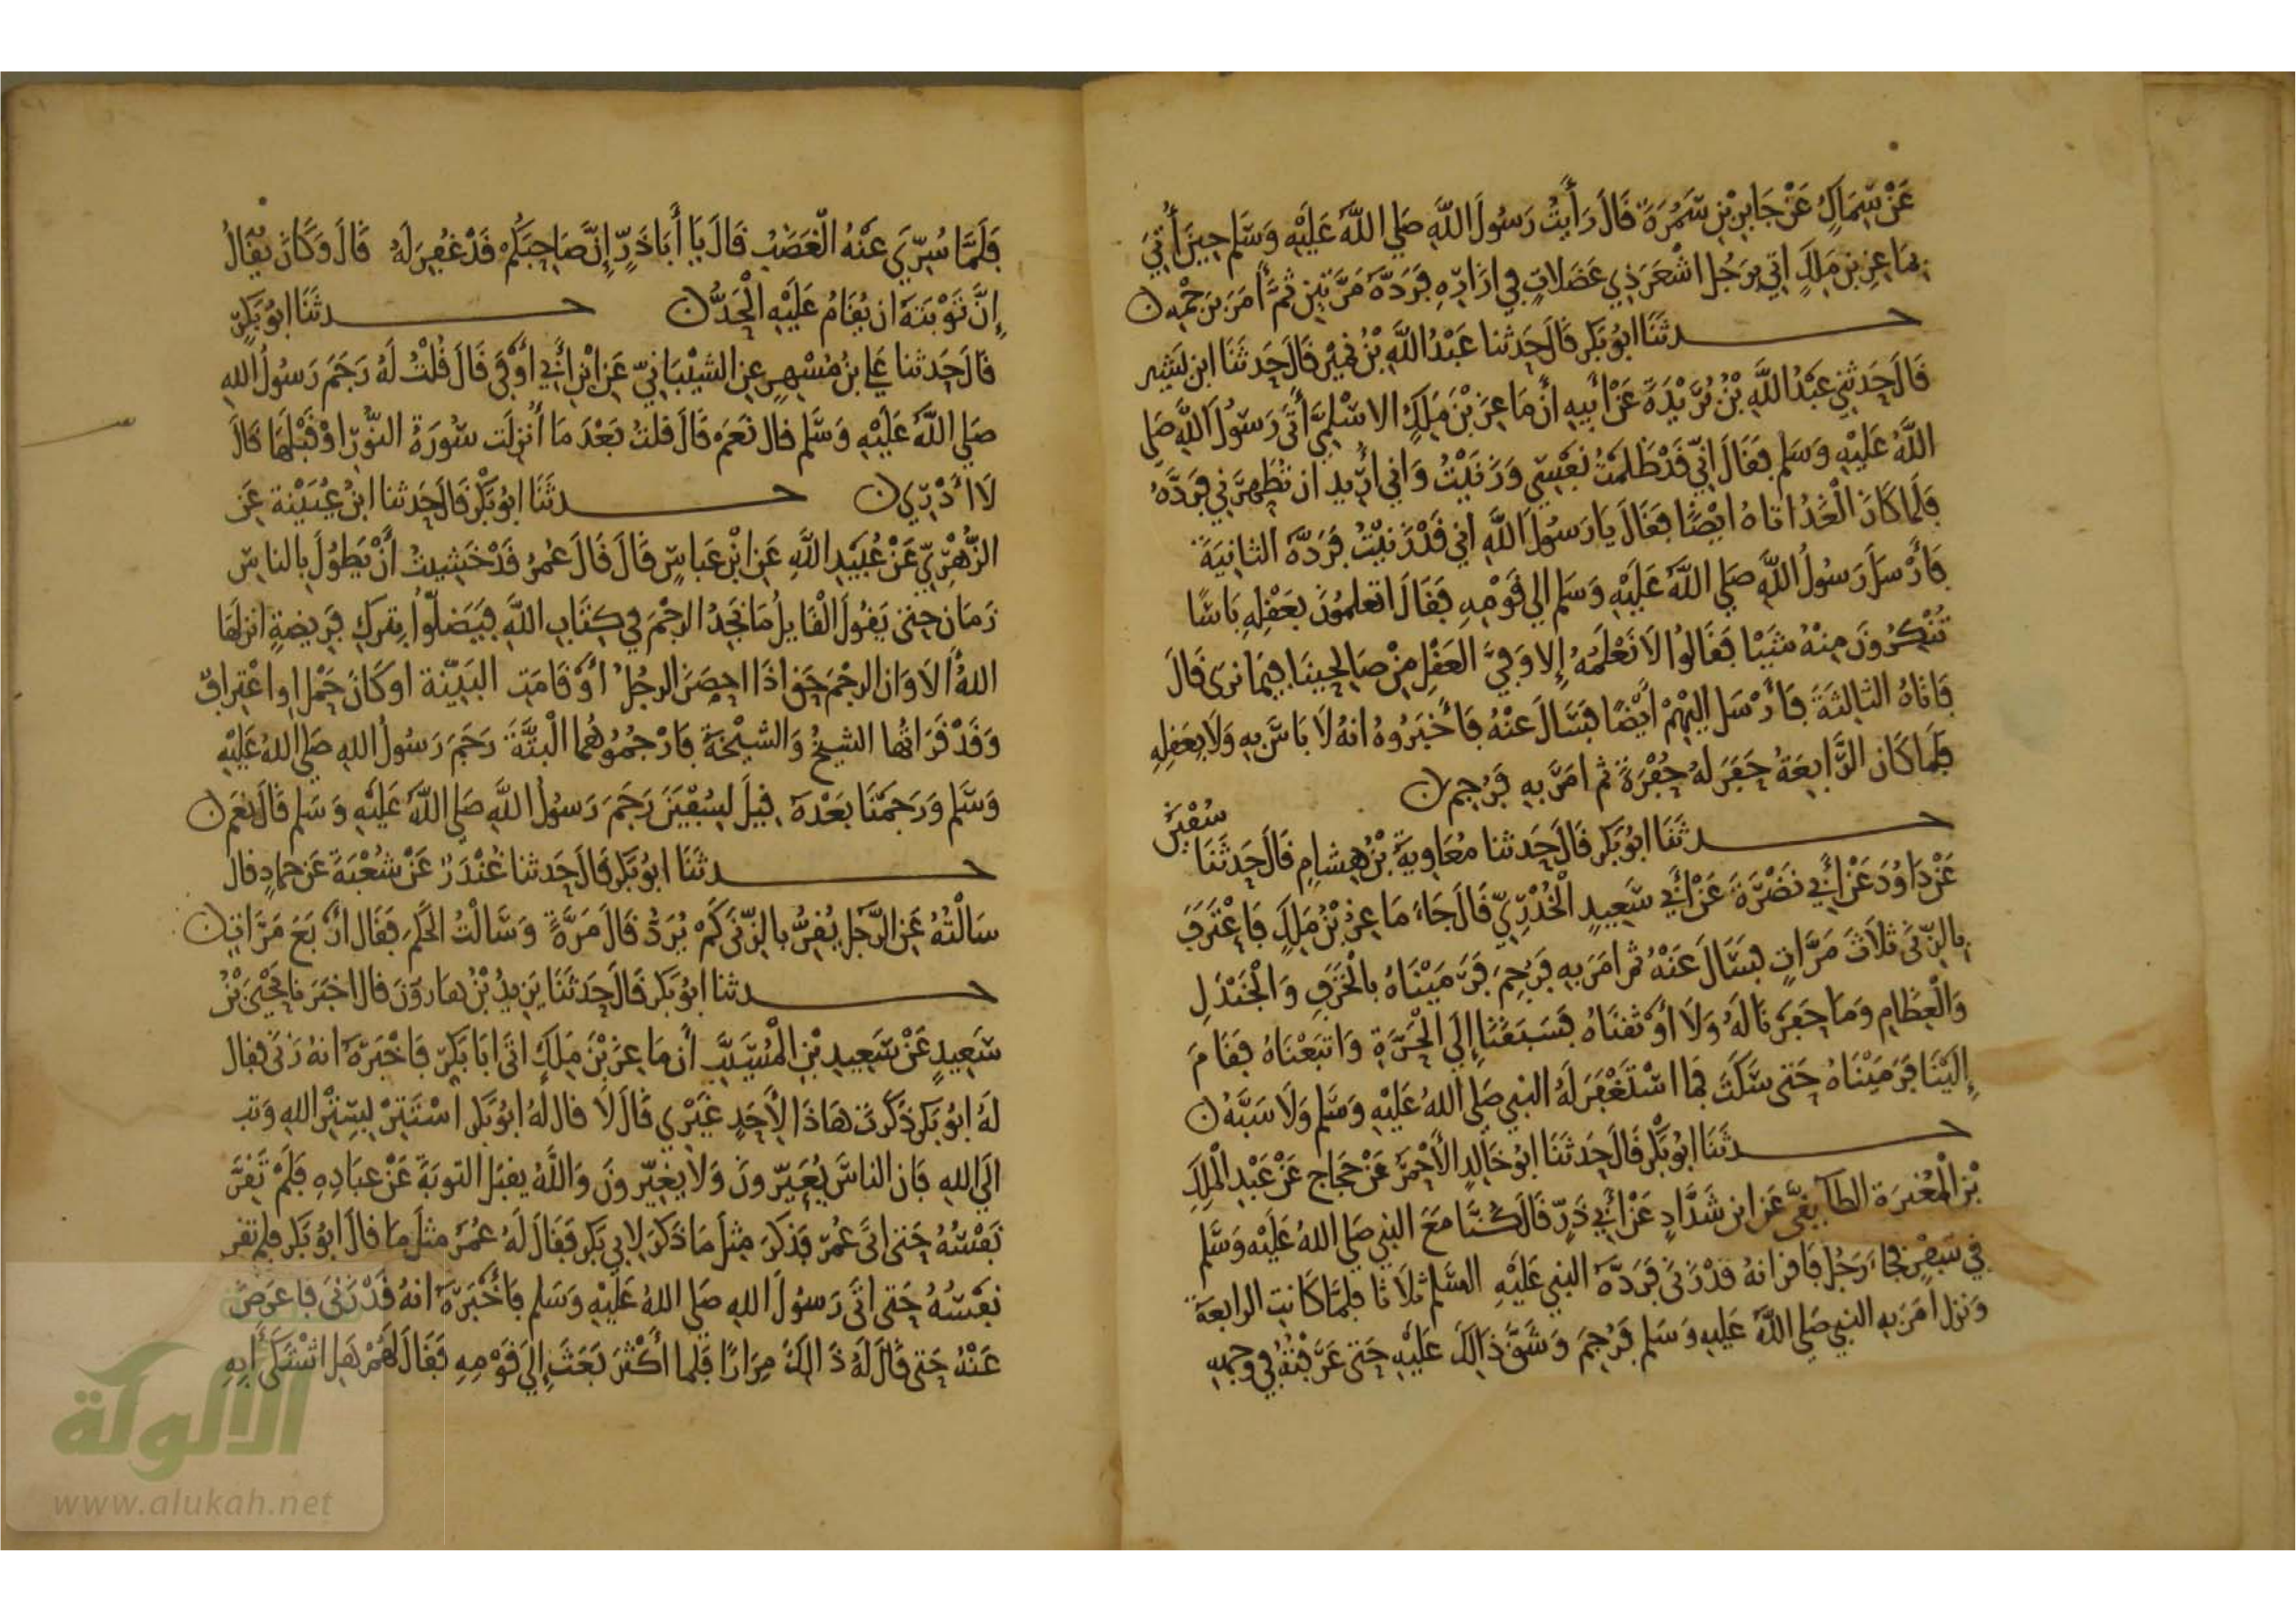 عَنْ سِمَاكٍ عَنْ جَابِرِ بْنِ سَمُرَةَ قَالَ رَأَيْتُ رَسُولَ اللَّهِ صَلى اللَّهُ عَلَيْهِ وَسَلم حِينَ أُتِيَ
بِمَاعِزِ بْنِ مَلِكٍ اتي بِرَجُلٍ اشْعَرَ ذِي عَضَلاتٍ فِي ازَارِهِ فَرَدَّهُ مَرَّتَيْنِ ثُمَّ أَمَرَ بِرَجْمِهِ ن
حـــدثَنَا ابُو بَكرٍ قَالَ حَدثنا عَبْدُ اللَّهِ بْنُ نُمَيْرٍ قَالَ حَدثَنَا ابن بَشِير
قَالَ حَدثني عَبْدُ اللَّهِ بْنُ بُرَيْدَةَ عَنْ أَبِيهِ أَنَّ مَاعِزَ بْنَ مَلِكٍ الاسْلَمِيَّ أَتَى رَسُولَ اللَّهِ صَلى
اللَّهُ عَلَيْهِ وَسَلم فَقَالَ انِّي قَدْ ظَلَمْتُ نَفْسِي وَزَنَيْتُ وَاني أُرِيد ان تُطَهِّرَنِي فَرَدَّهُ
فَلَمَا كَانَ الْغَدُ اتَاهُ ايْضًا فَقَالَ يَا رَسُولَ اللَّهِ اني قَدْ زَنَيْتُ فَرَدَّهُ الثانِيَةَ
فَأَرْسَلَ رَسُولُ اللَّهِ صَلى اللَّهُ عَلَيْهِ وَسَلم الي قَوْمِهِ فَقَالَ اتعلمُونَ بعَقْلِهِ بَاسًا
تُنْكِرُونَ مِنْهُ شَيْئا فَقَالُوا لاَ نَعْلَمُهُ إِلا وَفِيَّ العَقْلِ مِنْ صَالِحِينَا فِيمَا نرى قَالَ
فَاتَاهُ الثالِثَةَ فَأَرْسَل اليْهِمْ أَيْضًا فَسَالَ عَنْهُ فَأَخْبَرُوهُ انهُ لاَ بَاسَ بِهِ وَلاَ بِعَقلِهِ
فَلَمَا كَان الرَّابِعَةُ حَفَرَ لَهُ حُفْرَةً ثم امَرَ بِهِ فَرُجِم ن
حـــدثَنَا ابُو بَكر قَالَ حَدثنا مُعَاوِيةُ بْنُ هِشامٍ قَالَ حَدثَنَا سُفْيَنُ
عَنْ دَاوُدَ عَنْ أَبِي نَضْرَةَ عَنْ أَبِي سَعِيدٍ الْخُدْرِيِّ قَالَ جَاءَ مَاعِزُ بْنُ مَلِكٍ فَاعْتَرَفَ
بِالزِّنَى ثَلاَثَ مَرَّاتٍ فسَالَ عَنْهُ ثم امَرَ بِهِ فَرُجِمَ فَرَمَيْنَاهُ بالْخَزَفِ وَالْجَنْدَلِ
وَالْعِظَامِ وَمَا حَفَرْنَا لَهُ وَلاَ أَوْثَقنَاهُ فَسَبَقَنَا إِلَي الْحَرَّةِ وَاتبَعْنَاهُ فَقَامَ
إِلَيْنَا فَرَمَيْنَاهُ حَتى سَكَتَ فمَا اسْتَغْفَرَ لَهُ النبي صَلى اللهُ عَلَيْهِ وَسَلم وَلاَ سَبَّهُ ن
حـــدثَنَا ابُو بَكْرٍ قَالَ حَدثَنَا ابُو خَالِدٍ الأَحْمَرُ عَنْ حَجَاج عَنْ عَبْدِ الْمَلِكِ
بْنِ الْمُغِيرَةِ الطآيِفِيِّ عَنِ ابن شَدَّادٍ عَنْ أَبِي ذَرٍّ قَالَ كُنَّا مَعَ النبي صَلى اللهُ عَلَيْهِ وَسَلم
فِي سَفَرٍ فجَاءَ رَجُلٌ فَاقر انهُ قَدْ زَنَى فَرَدَّهُ النبي عَلَيْهِ السَّلم ثَلاَثا فَلَمَّا كَانتِ الرابعَةُ
وَنَزل امَرَ بِهِ النبي صَلى اللهُ عَلَيهِ وَسَلم فَرُجِمَ وَشَقَّ ذَالِكَ عَلَيْهِ حَتى عَرَفْتُهُ فِي وَجهِهِ
فَلَمَّا سُرِّيَ عَنْهُ الْغَضَبُ قَالَ يَا أَبَا ذَرٍّ إِنَّ صَاحِبَكُمْ قَدْ غُفِرَ لَهُ قَالَ وَكَانَ يُقَالُ
إِنَّ تَوْبَتَهُ ان يُقَامُ عَلَيْهِ الْحَدُّ ن حـــدثَنَا ابُو بَكرٍ
قَالَ حَدثنا عَلي بنُ مُسْهِرٍ عنِ الشيْبَانِيِّ عَنِ ابْنِ أَبِي أَوْفَى قَالَ قُلْتُ لَهُ رَجَمَ رَسُولُ اللهِ
صَلى اللَّهُ عَلَيْهِ وَسَلم قال نَعَمْ قَالَ قلتُ بَعْدَ مَا أُنْزِلَت سُورَةُ النُّورِ اوْ قَبْلَهَا قَالَ
لاَ أَدْرِي ن حـــدثَنَا ابُو بَكْر قَالَ حَدثنا ابْنُ عُيَيْنة عَنِ
الزُّهْرِيِّ عَنْ عُبَيْدِ اللَّهِ عَنِ ابْنِ عَباسٍ قَالَ قَالَ عُمَرُ قَدْ خَشِيتُ أَنْ يَطُولَ بِالناسِ
زَمَان حَتى يَقُولَ الْقَايِلُ مَا نَجِدُ الرجْمَ فِي كِتَابِ اللَّهِ فَيَضلُّوا بِتَركِ فَرِيضةٍ انزلَهَا
اللهُ أَلاَ وَان الرجْمَ حَق اذَا احصَنَ الرجُلُ أَوْ قَامَتِ البَيِّنَة اوْ كَانَ حَمْل اوِ اعْتِرَافٌ
وَقَدْ قَرَاتُها الشيخُ وَالشيْخَةُ فَارْجُمُوهُما الْبَتَّةَ رَجَمَ رَسُولُ اللهِ صَلى اللهُ عَلَيْهِ
وَسَلم وَرَجَمْنَا بَعْدَهُ قِيلَ لِسُفْيَنَ رَجَمَ رَسُولُ اللَّهِ صَلى اللَّهُ عَلَيْهِ وَسَلم قَالَ نَعَمْ ن
حـــدثَنَا ابُو بَكر قَالَ حَدثنا غُنْدَرٌ عَنْ شُعْبَةَ عَن حمادٍ قال
سَالْتُهُ عَنِ الرَّجُلِ يُقِرُّ بالزِّنَى كَمْ يُرَدُّ قَالَ مَرَّةً وَسَالْتُ الحَكَمَ فَقَالَ أَرْبَعَ مَرَّاتٍ ن
حـــدثنا ابُو بَكر قَالَ حَدثَنَا يَزِيدُ بْنُ هَارُونَ قال اخبَرَنا يَحْيَى بْنُ
سَعِيدٍ عَنْ سَعِيدِ بْنِ الْمُسَيَّبِ أَن مَاعِزَ بْنَ مَلِكٍ اتَى ابَا بَكرٍ فَاخْبَرَهُ انهُ زَنَى فقال
لَهُ ابُو بَكر ذَكَرْتَ هَاذَا لأَحَدٍ غَيْرِي قَالَ لاَ قال لَهُ ابُو بَكرٍ اسْتَتِرْ بِسِتْرِ اللهِ وَتب
الَى اللهِ فَان الناسَ يُعَيِّرُونَ وَلاَ يغَيِّرُونَ وَاللَّهُ يقبَل التوبَةَ عَنْ عِبَادِهِ فَلَمْ تَقَرَّ
نَفْسُهُ حَتى اتَى عُمَرَ فَذَكَرَ مِثلَ مَا ذَكَرَ لابِي بَكر فَقَالَ لَهُ عُمَرُ مثلَ مَا قالَ ابُو بَكرٍ فلم تقر
نَفْسُهُ حَتى اتَى رَسُولَ اللهِ صَلى اللهُ عَلَيْهِ وَسَلم فَأَخْبَرَهُ انهُ قَدْ زَنَى فَاعرَضَ
عَنْهُ حَتى قَالَ لَهُ ذَالِكَ مِرَارًا فَلَما أَكْثَرَ بَعَثَ إِلَي قَوْمِهِ فَقَالَ لَهُمْ هَلِ اشْتَكَى أَبِهِ
الألوكة
www.alukah.net